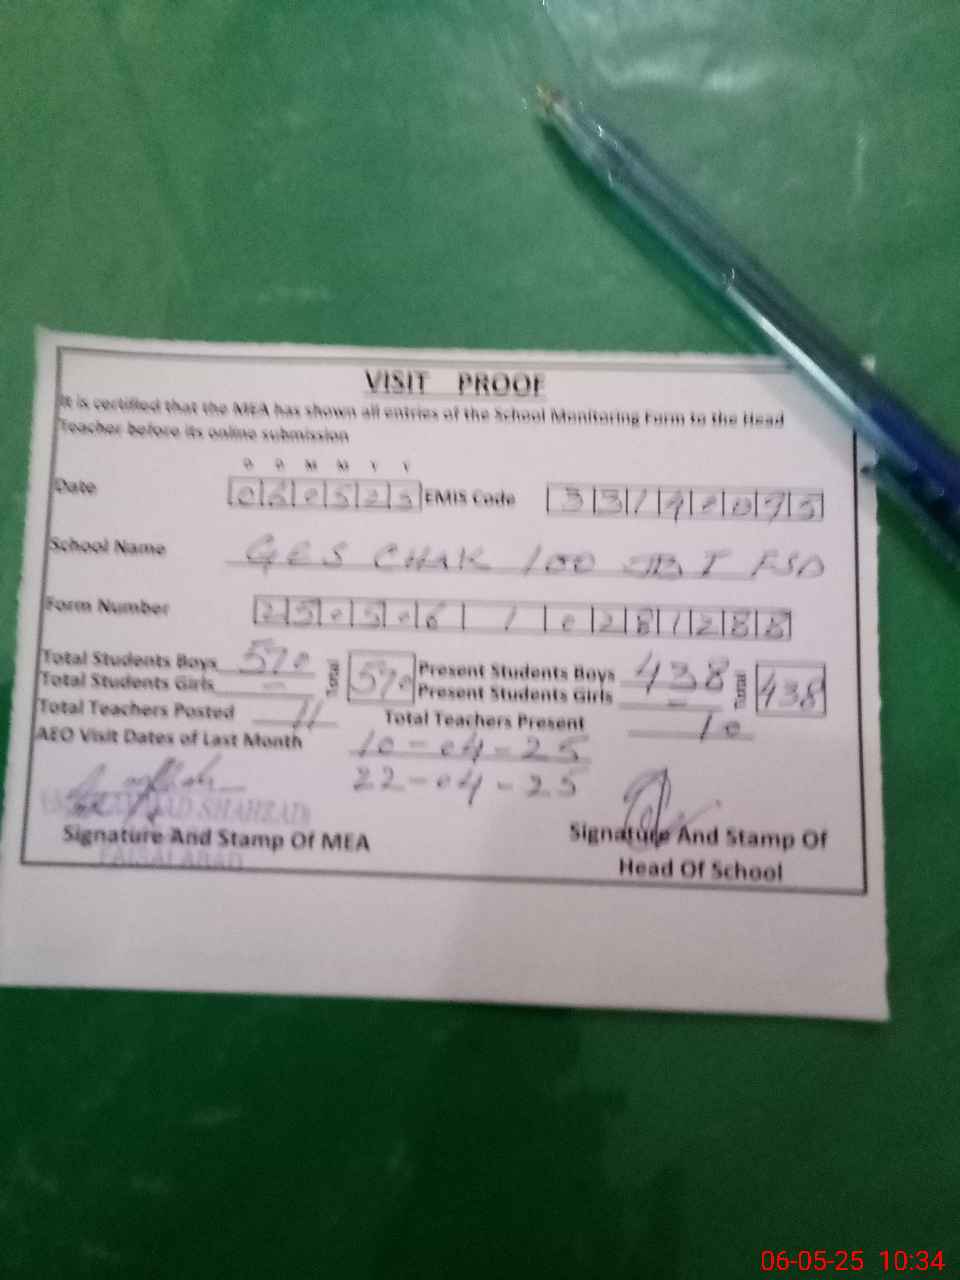 VISIT PROOF
It is certified that the MEA has shown all entries of the School Monitoring Form to the Head
Teacher before its online submission
D D M M Y Y
Date 060525 EMIS Code 33142075
School Name GES CHAK 100 JB I FSD
Form Number 250506 1 0281288
Total Students Boys 570 Total 570 Present Students Boys 438 Total 438
Total Students Girls - Present Students Girls -
Total Teachers Posted 11 Total Teachers Present 10
AEO Visit Dates of Last Month 10-04-25
22-04-25
SHAHZAD
Signature And Stamp Of MEA Signature And Stamp Of
FAISALABAD Head Of School
06-05-25 10:34